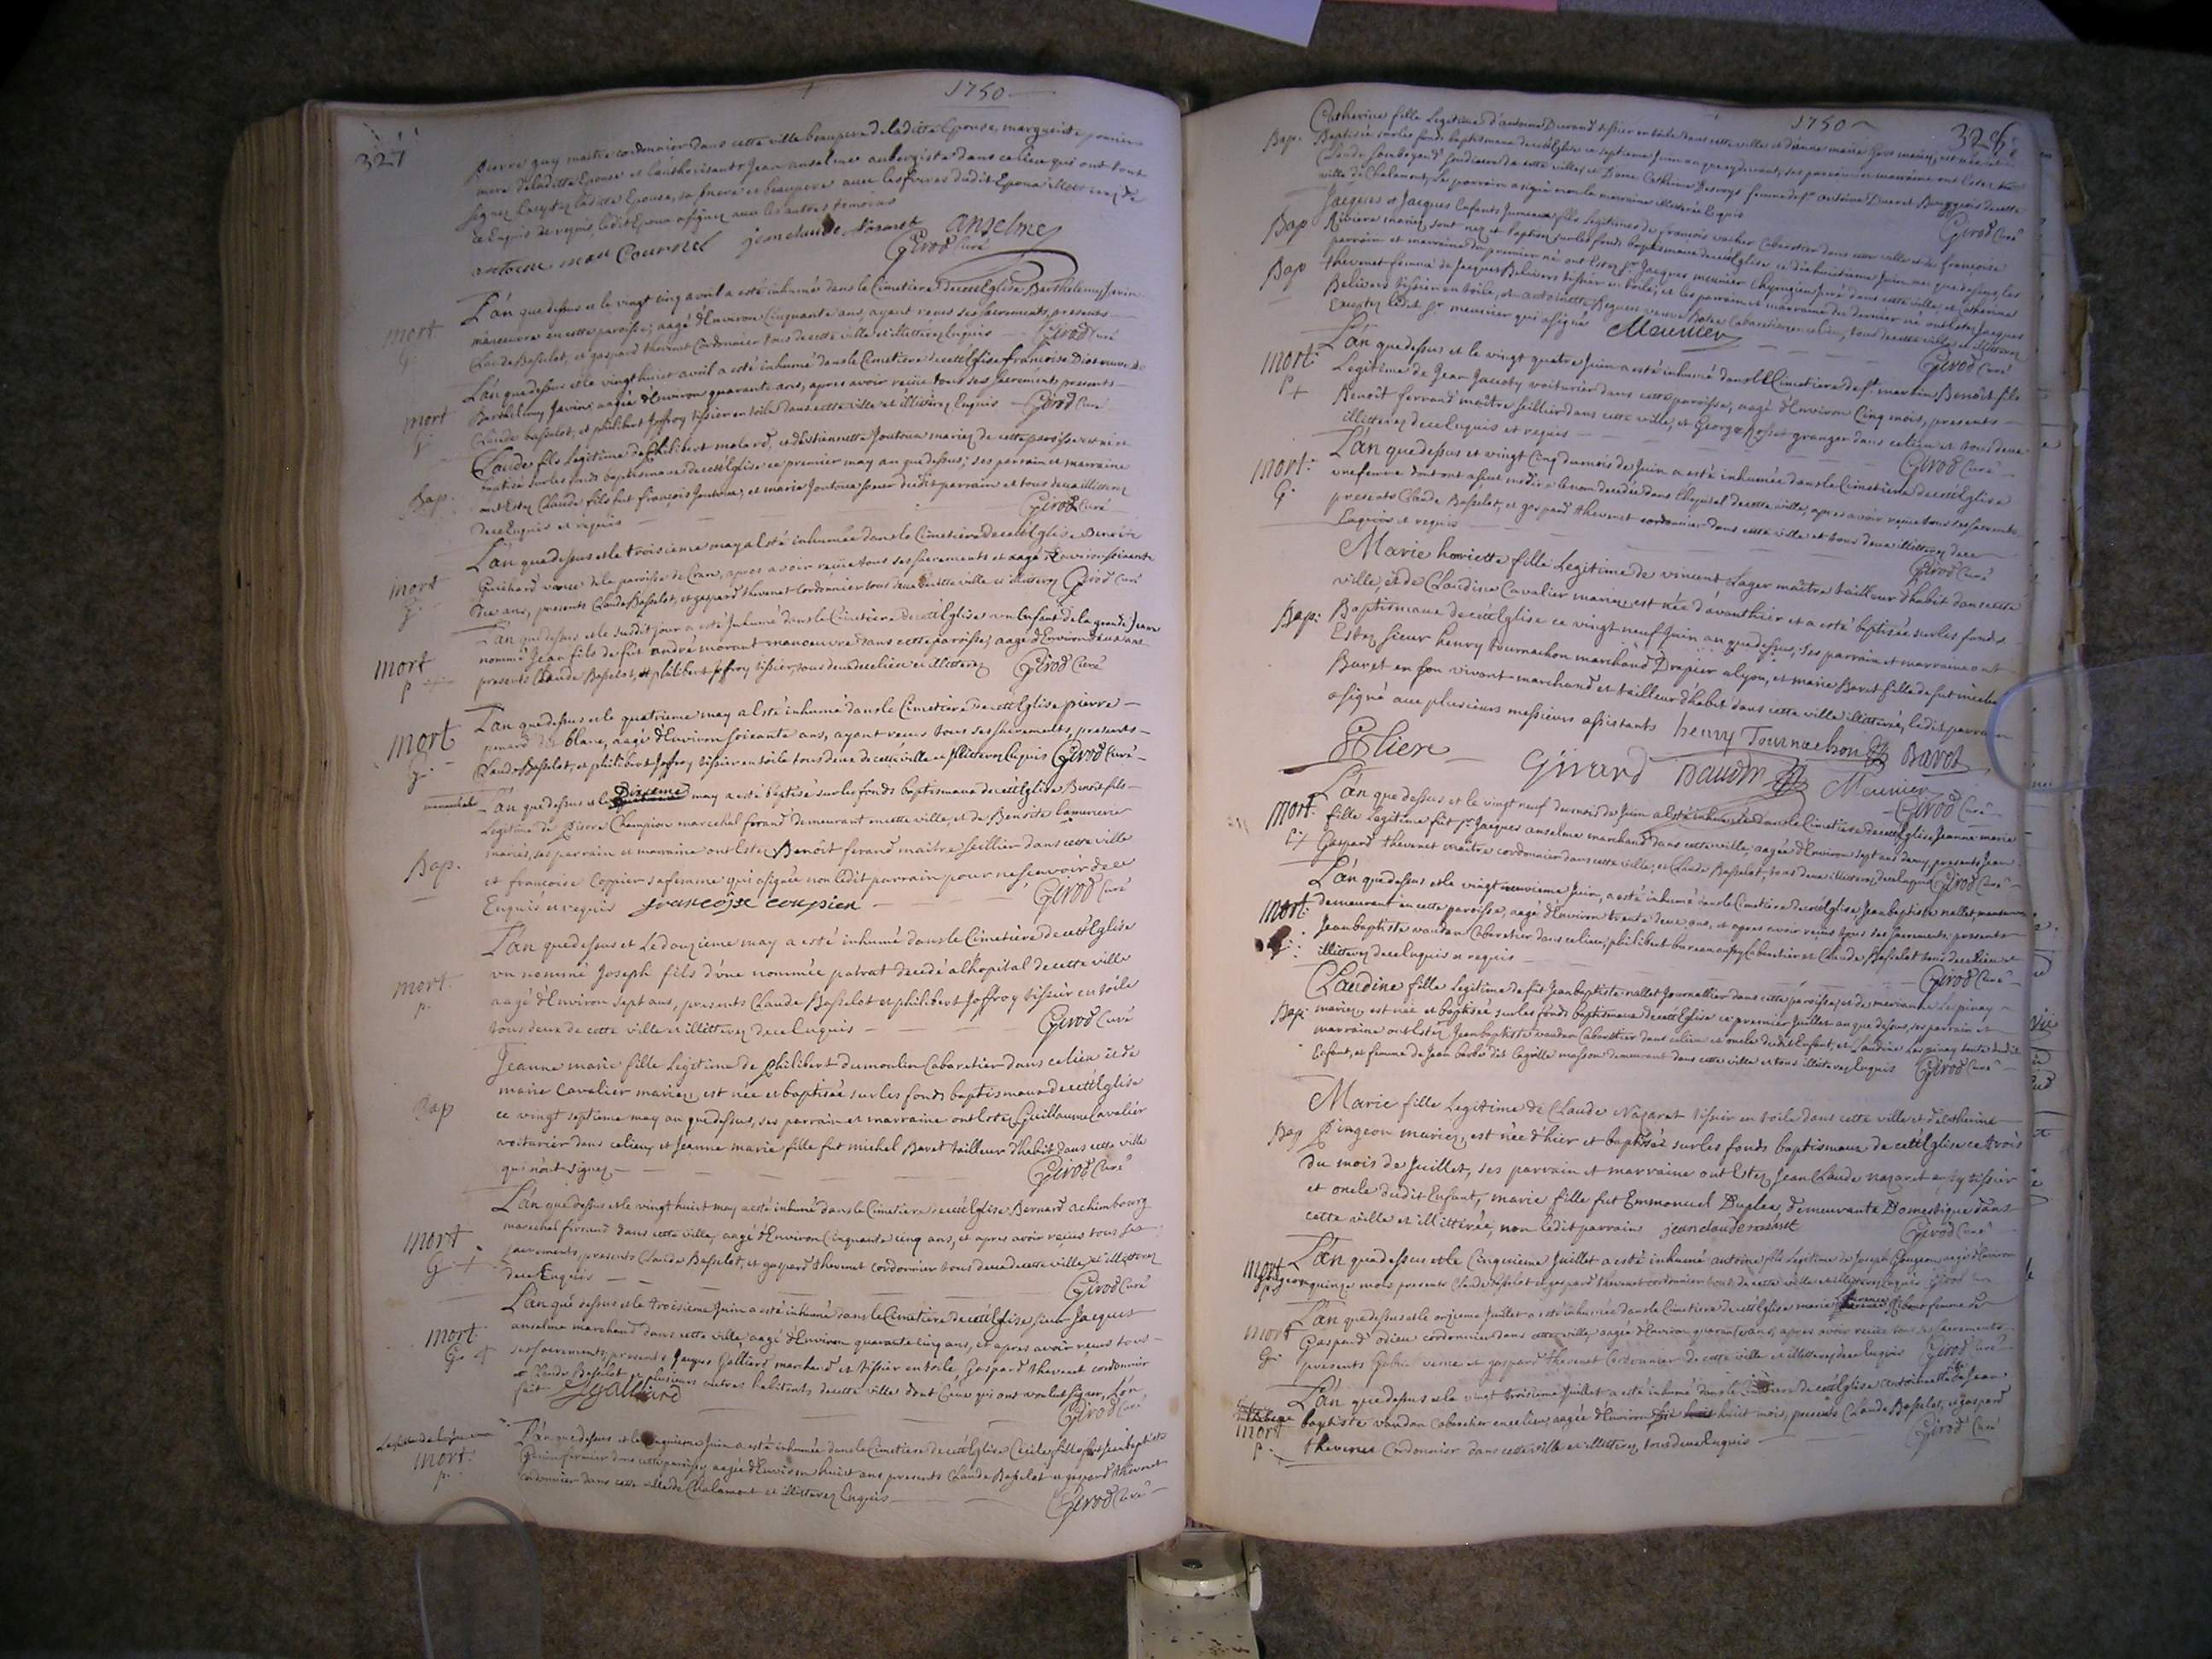 1750
327
pierre guy maitre cordonnier dans cette ville beaupere de laditte Epouse, margueritte
mere de laditte Epouse et l'authorisant, Jean anselme aubergiste dans ce lieu qui ont tout
signez Excepter laditte Epouse, sa mere et beaupere avec les freres dudit Epoux illitterez de
ce Enquis et requis, ledit Epoux a signez avec les autres temoins
jean claude Nazaret anselme
antoine Girod Curé
L'an que dessus et le vingt cinq avril a esté inhumé dans le Cimetiere de cette Eglise Barthelemy Javin
mort
G.
manoeuvre en cette paroisse, aagé d'Environ Cinquante ans, ayant receus ses sacrements, presents
Claude Basselot, et gaspard thevenet Cordonnier tous de cette ville et illitterez Enquis Girod Curé
L'an que dessus et le vingt huict avril a esté inhumé dans le Cimetiere de cette Eglise francoise Dios veuve de
mort
G.
Barthelemy Javin, aagée d'Environ quarante ans, apres avoir recüe tous ses sacrements presents
Claude basselot, et philibert Joffroy tissier en toile dans cette ville et illitterez Enquis Girod Curé
Claude fils legitime de Philibert molard, et d'Estiennette Joutoux mariez de cette paroisse est né et
Bap.
baptisé sur les fonds baptismaux de cette Eglise ce premier may an que dessus; ses parrain et marraine
ont Estez Claude fils fut françois Joutoux, et marie Joutoux soeur dudit parrain et tous deux illitterez
de ce Enquis et requis Girod Curé
L'an que dessus et le troisieme may a esté inhumée dans le Cimetiere de cette Eglise Benoite
mort
G.
Guichard veuve de la paroisse de Cran, apres avoir recüe tous ses sacrements et aagée d'Environ soixante
dix ans, presents Claude Basselot, et gaspard thevenet Cordonnier tous deux de cette ville et illitterez Girod Curé
L'an que dessus et le susdit jour a esté Inhumé dans le Cimetiere de cette Eglise un Enfant de la grande Jeane
mort
p
nommé Jean fils de fut andré morant manoeuvre dans cette paroisse, aagé d'Environ deux ans
presents Claude Basselot, et philibert Joffroy tissier, tous deux de ce lieu et illitterez Girod Curé
L'an que dessus et le quatrieme may a esté inhumé dans le Cimetiere de cette Eglise pierre
mort
G.
penard dit blanc, aagé d'Environ soixante ans, ayant receus tous ses sacrements, presents
Claude Basselot, et philibert Joffroy tissier en toile tous deux de cette ville et Illitterez Enquis Girod Curé
L'an que dessus et le Dixieme may a esté baptisé sur les fonds baptismaux de cette Eglise Benoit fils
Bap.
legitime de Pierre Champion marechal ferand demeurant en cette ville, et de Benoite lamercerie
mariés, ses parrain et marraine ont Estez Benoit ferand maitre sellier dans cette ville
et francoise Coppier sa femme qui a signée non ledit parrain pour ne sçavoir de ce
Enquis et requis francoise coupier Girod Curé
L'an que dessus et Le douzieme may a esté inhumé dans le Cimetiere de cette Eglise
mort.
p.
un nommé Joseph fils d'une nommée patrat decedé a lhopital de cette ville
aagé d'Environ sept ans, presents Claude Basselot et philibert Joffroy tissier en toile
tous deux de cette ville et illitterez de ce Enquis Girod Curé
Jeanne marie fille legitime de Philibert dumoulin Cabaretier dans ce lieu et de
Bap
marie Cavalier mariez, est née et baptisée sur les fonds baptismaux de cette Eglise
ce vingt septieme may an que dessus, ses parrain et marraine ont Estez Guillaume Cavalier
voiturier dans ce lieu, et Jeanne marie fille fut michel Baret tailleur d'habit dans cette ville
qui n'ont signez Girod Curé
L'an que dessus et le vingt huict may a esté inhumé dans le Cimetiere de cette Eglise Bernard achimbourg
mort
G. +
marechal ferrand dans cette ville, aagé d'Environ Cinquante cinq ans, et apres avoir recus tous ses
sacrements, presents Claude Basselot, et gaspard thevenet cordonnier tous deux de cette ville et illitterez
de ce Enquis Girod Curé
L'an que dessus et le troisieme Juin a esté inhumé dans le Cimetiere de cette Eglise sieur Jacques
mort.
G. +
anselme marchand dans cette ville, aagé d'Environ quarante cinq ans, et apres avoir receus tous
ses sacrements, presents Jaques Galliard marchand et tissier en toile, Gaspard thevenet cordonnier
et Claude Basselot et plusieurs autres habitants de cette ville dont Ceux qui ont voulut signer, L'on
fait Jgalliard Girod Curé
L'an que dessus et le Cinquieme Juin a esté inhumée dans le Cimetiere de cette Eglise Cecile fille fut Jean baptiste
mort.
p.
fermier dans cette paroisse, aagée d'Environ huict ans presents Claude Basselot et gaspard thevenet
cordonnier dans cette ville de Chalamont et illitterez Enquis Girod Curé
1750
328
Catherine fille Legitime d'antoine Durand tissier en toile dans cette ville et d'anne marie mariez, est née et
Bap.
Baptisée sur les fonds baptismaux de cette Eglise ce septieme Juin an que dessus, ses parrain et marraine ont Estez
Claude de cette ville, et Dame Catherine Desroys femme de sr antoine Duvret Bourgeois de cette
ville de Chalamont, le parrain a signé non la marraine illitterée Enquis Girod Curé
Jacques et Jacques Enfants Jumeaux fils Legitimes de françois vacher Cabaretier dans cette ville et de francoise
Bap
Riviere mariez, sont nez et baptisez sur les fonds baptismaux de cette Eglise ce dixhuictieme Juin an que dessus, les
parrain et marraine du premier né ont Estez sr Jacques meunier Chirurgien Juré dans cette ville, et Catherine
Bap
thevenet femme de Jacques Belivers tissier en toile, et les parrain et marraine du dernier né ont Estez Jacques
Belivers tissier en toile, et antoinette Cabaretier en ce lieu, tous de cette ville et illitterez
Exceptez ledit sr meunier qui a signé Meunier Girod Curé
L'an que dessus et le vingt quatre Juin a esté inhumé dans le Cimetiere de st martin, Benoit fils
mort.
p +
Legitime de Jean Jaccoby voiturier dans cette paroisse, aagé d'Environ Cinq mois, presents
Benoit ferrand maitre sellier dans cette ville, et George Rosset granger dans ce lieu et tous deux
illitterez de ce Enquis et requis Girod Curé
L'an que dessus et vingt Cinq du mois de Juin a esté inhumée dans le Cimetiere de cette Eglise
mort.
G.
une femme dont on a sçeut nous dire le nom decedée dans l'hopital de cette ville, apres avoir recüe tous ses sacrements
presents Claude Basselot, et gaspard thevenet cordonnier dans cette ville et tous deux illitterez de ce
Enquis et requis Girod Curé
Marie henriette fille Legitime de vincent Lager maitre tailleur d'habit dans cette
ville, et de Claudine Cavalier mariez, est née d'avanthier et a esté baptisée sur les fonds
Bap.
Baptismaux de cette Eglise ce vingt neuf Juin an que dessus, ses parrain et marraine ont
Estez sieur henry tournachon marchand Drapier a lyon, et marie Baret fille de fut michel
Baret en son vivant marchand et tailleur d'habit dans cette ville illitterée, ledit parrain
a signé avec plusieurs messieurs assistants henry Tournachon Baret
Girard Daudin Meunier
Girod Curé
L'an que dessus et le vingt neuf du mois de Juin a esté inhumée dans le Cimetiere de cette Eglise Jeanne marie
mort.
p. +
fille Legitime fut sr Jacques anselme marchand dans cette ville, aagée d'Environ sept ans demy, presents Jean
Gaspard thevenet maitre cordonnier dans cette ville, et Claude Basselot, tous deux illitterez de ce Enquis Girod Curé
L'an que dessus et le vingt neuvieme Juin, a esté inhumé dans le Cimetiere de cette Eglise Jean baptiste nallet, manoeuvre
mort.
G.
demeurant en cette paroisse, aagé d'Environ trente deux ans, et apres avoir recus tous ses sacrements, presents
Jean baptiste vaudan Cabaretier dans ce lieu, philibert bureau aussy Cabaretier et Claude Basselot tous de ce lieu et
illitterez de ce Enquis et requis Girod Curé
Claudine fille Legitime de fut Jean baptiste nallet Journallier dans cette paroisse, et de marianne Lespinay
Bap.
mariez, est née et baptisée sur les fonds baptismaux de cette Eglise ce premier Juillet an que dessus, ses parrain et
marraine ont Estez Jean baptiste vaudan Cabaretier dans ce lieu et oncle dudit Enfant, et Claudine Lespinay tante dudit
Enfant, et femme de Jean barbé dit masson demeurant dans cette ville et tous illitterez Enquis Girod Curé
Marie fille Legitime de Claude Nazaret tissier en toile dans cette ville et de Catherine
Bap
Pingeon mariez, est née d'hier et baptisée sur les fonds baptismaux de cette Eglise ce trois
du mois de Juillet, ses parrain et marraine ont Estez Jean Claude nazaret aussy tissier
et oncle dudit Enfant, marie fille fut Emmanuel Duplex, demeurante Domestique dans
cette ville et illitterée, non ledit parrain jean claude nazaret Girod Curé
L'an que dessus et le Cinquieme Juillet a esté inhumé antoine fils Legitime de Joseph Gougeon, aagé d'Environ
mort
quinze mois presents Claude Basselot et gaspard thevenet cordonnier tous de cette ville et illitterez Enquis Girod Curé
L'an que dessus et le onzieme Juillet a esté inhumée dans le Cimetiere de cette Eglise marie femme de
mort
G.
Gaspard odieu cordonnier dans cette ville, aagée d'Environ quarante ans, apres avoir recüe tous ses sacrements
presents Gabriel verne et gaspard thevenet Cordonnier de cette ville et illitterez de ce Enquis Girod Curé
L'an que dessus et le vingt troisieme Juillet a esté inhumé dans le Cimetiere de cette Eglise antoinette fille de Jean
mort
p.
baptiste vaudan Cabaretier en ce lieu, aagée d'Environ huict mois, presents Claude Basselot, et gaspard
thevenet Cordonnier dans cette ville et illitterez tous deux Enquis Girod Curé